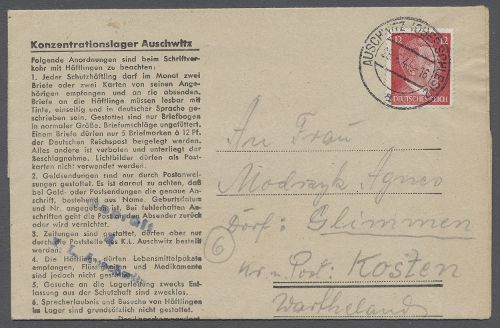 Konzentrationslager Auschwitz
Folgende Anordnungen sind beim Schriftver-
kehr mit Häftlingen zu beachten:
1. Jeder Schutzhäftling darf im Monat zwei
Briefe oder zwei Karten von seinen Ange-
hörigen empfangen und an sie absenden.
Briefe an die Häftlinge müssen lesbar mit
Tinte, einseitig und in deutscher Sprache ge-
schrieben sein. Gestattet sind nur Briefbogen
in normaler Größe. Briefumschläge ungefüttert.
Einem Briefe dürfen nur 5 Briefmarken à 12 Pf.
der Deutschen Reichspost beigelegt werden.
Alles andere ist verboten und unterliegt der
Beschlagnahme. Lichtbilder dürfen als Post-
karten nicht verwendet werden.
2. Geldsendungen sind nur durch Postanwei-
sungen gestattet. Es ist darauf zu achten, daß
bei Geld- oder Postsendungen die genaue An-
schrift, bestehend aus Name, Geburtsdatum
und Nr. angegeben ist. Bei fehlerhaften An-
schriften geht die Post an den Absender zurück
oder wird vernichtet.
3. Zeitungen sind gestattet, dürfen aber nur
durch die Poststelle des K.L. Auschwitz bestellt
werden.
4. Die Häftlinge dürfen Lebensmittelpakete
empfangen, Flüssigkeiten und Medikamente
sind jedoch nicht gestattet.
5. Gesuche an die Lagerleitung zwecks Ent-
lassung aus der Schutzhaft sind zwecklos.
6. Sprecherlaubnis und Besuche von Häftlingen
im Lager sind grundsätzlich nicht gestattet.
Der Lagerkommandant
AUSCHWITZ
12 12
DEUTSCHES REICH
An Frau
Modrzyk Agnes
Dorf: Glimmen
6
Kr. u. Post: Kosten
Wartheland